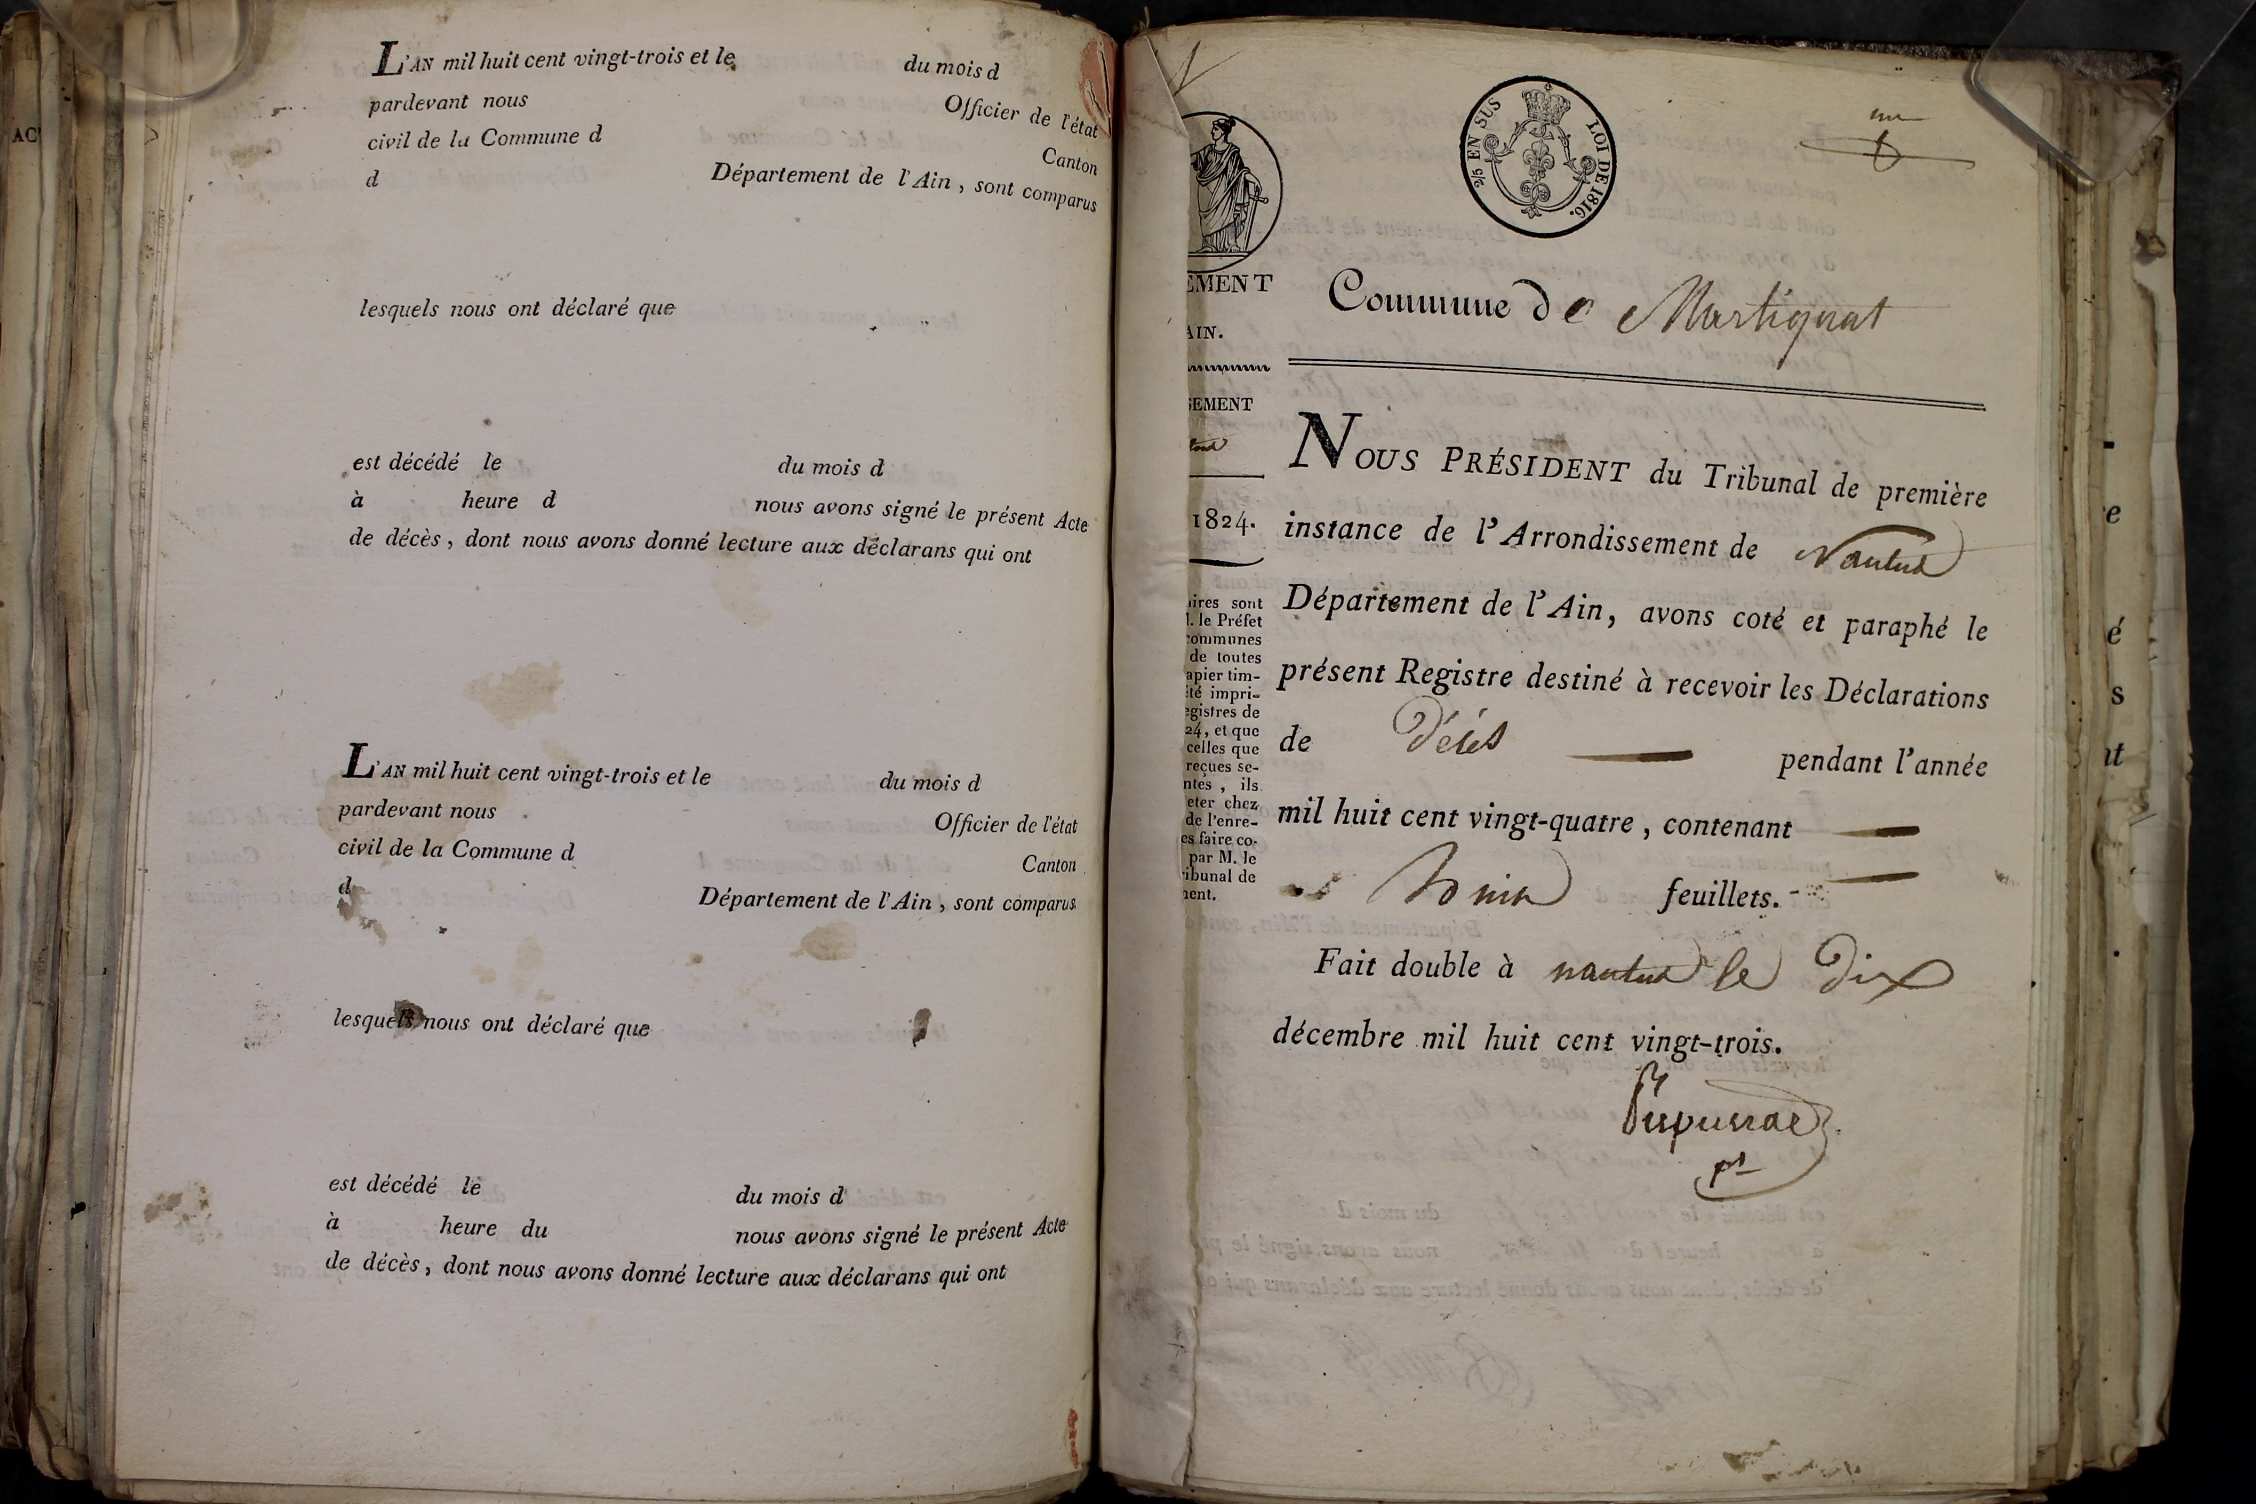 AC
L'AN mil huit cent vingt-trois et le du mois d
pardevant nous Officier de l'état
civil de la Commune d Canton
d Département de l'Ain, sont comparus
lesquels nous ont déclaré que
est décédé le du mois d
à heure d nous avons signé le présent Acte
de décès, dont nous avons donné lecture aux déclarans qui ont
L'AN mil huit cent vingt-trois et le du mois d
pardevant nous Officier de l'état
civil de la Commune d Canton
d Département de l'Ain, sont comparus
lesquels nous ont déclaré que
est décédé le du mois d
à heure du nous avons signé le présent Acte
de décès, dont nous avons donné lecture aux déclarans qui ont
EMENT
AIN.
SEMENT
1824.
aires sont
M. le Préfet
communes
de toutes
apier tim-
été impri-
egistres de
24, et que
celles que
reçues se-
ntes, ils
eter chez
de l'enre-
es faire co-
par M. le
ribunal de
ment.
2/5 EN SUS LOI DE 1816.
un
Commune de Martignat
NOUS PRÉSIDENT du Tribunal de première
instance de l'Arrondissement de Nantua
Département de l'Ain, avons coté et paraphé le
présent Registre destiné à recevoir les Déclarations
de Décès pendant l'année
mil huit cent vingt-quatre, contenant
feuillets.
Fait double à nantua le Dix
décembre mil huit cent vingt-trois.
pt
e
é
s
nt